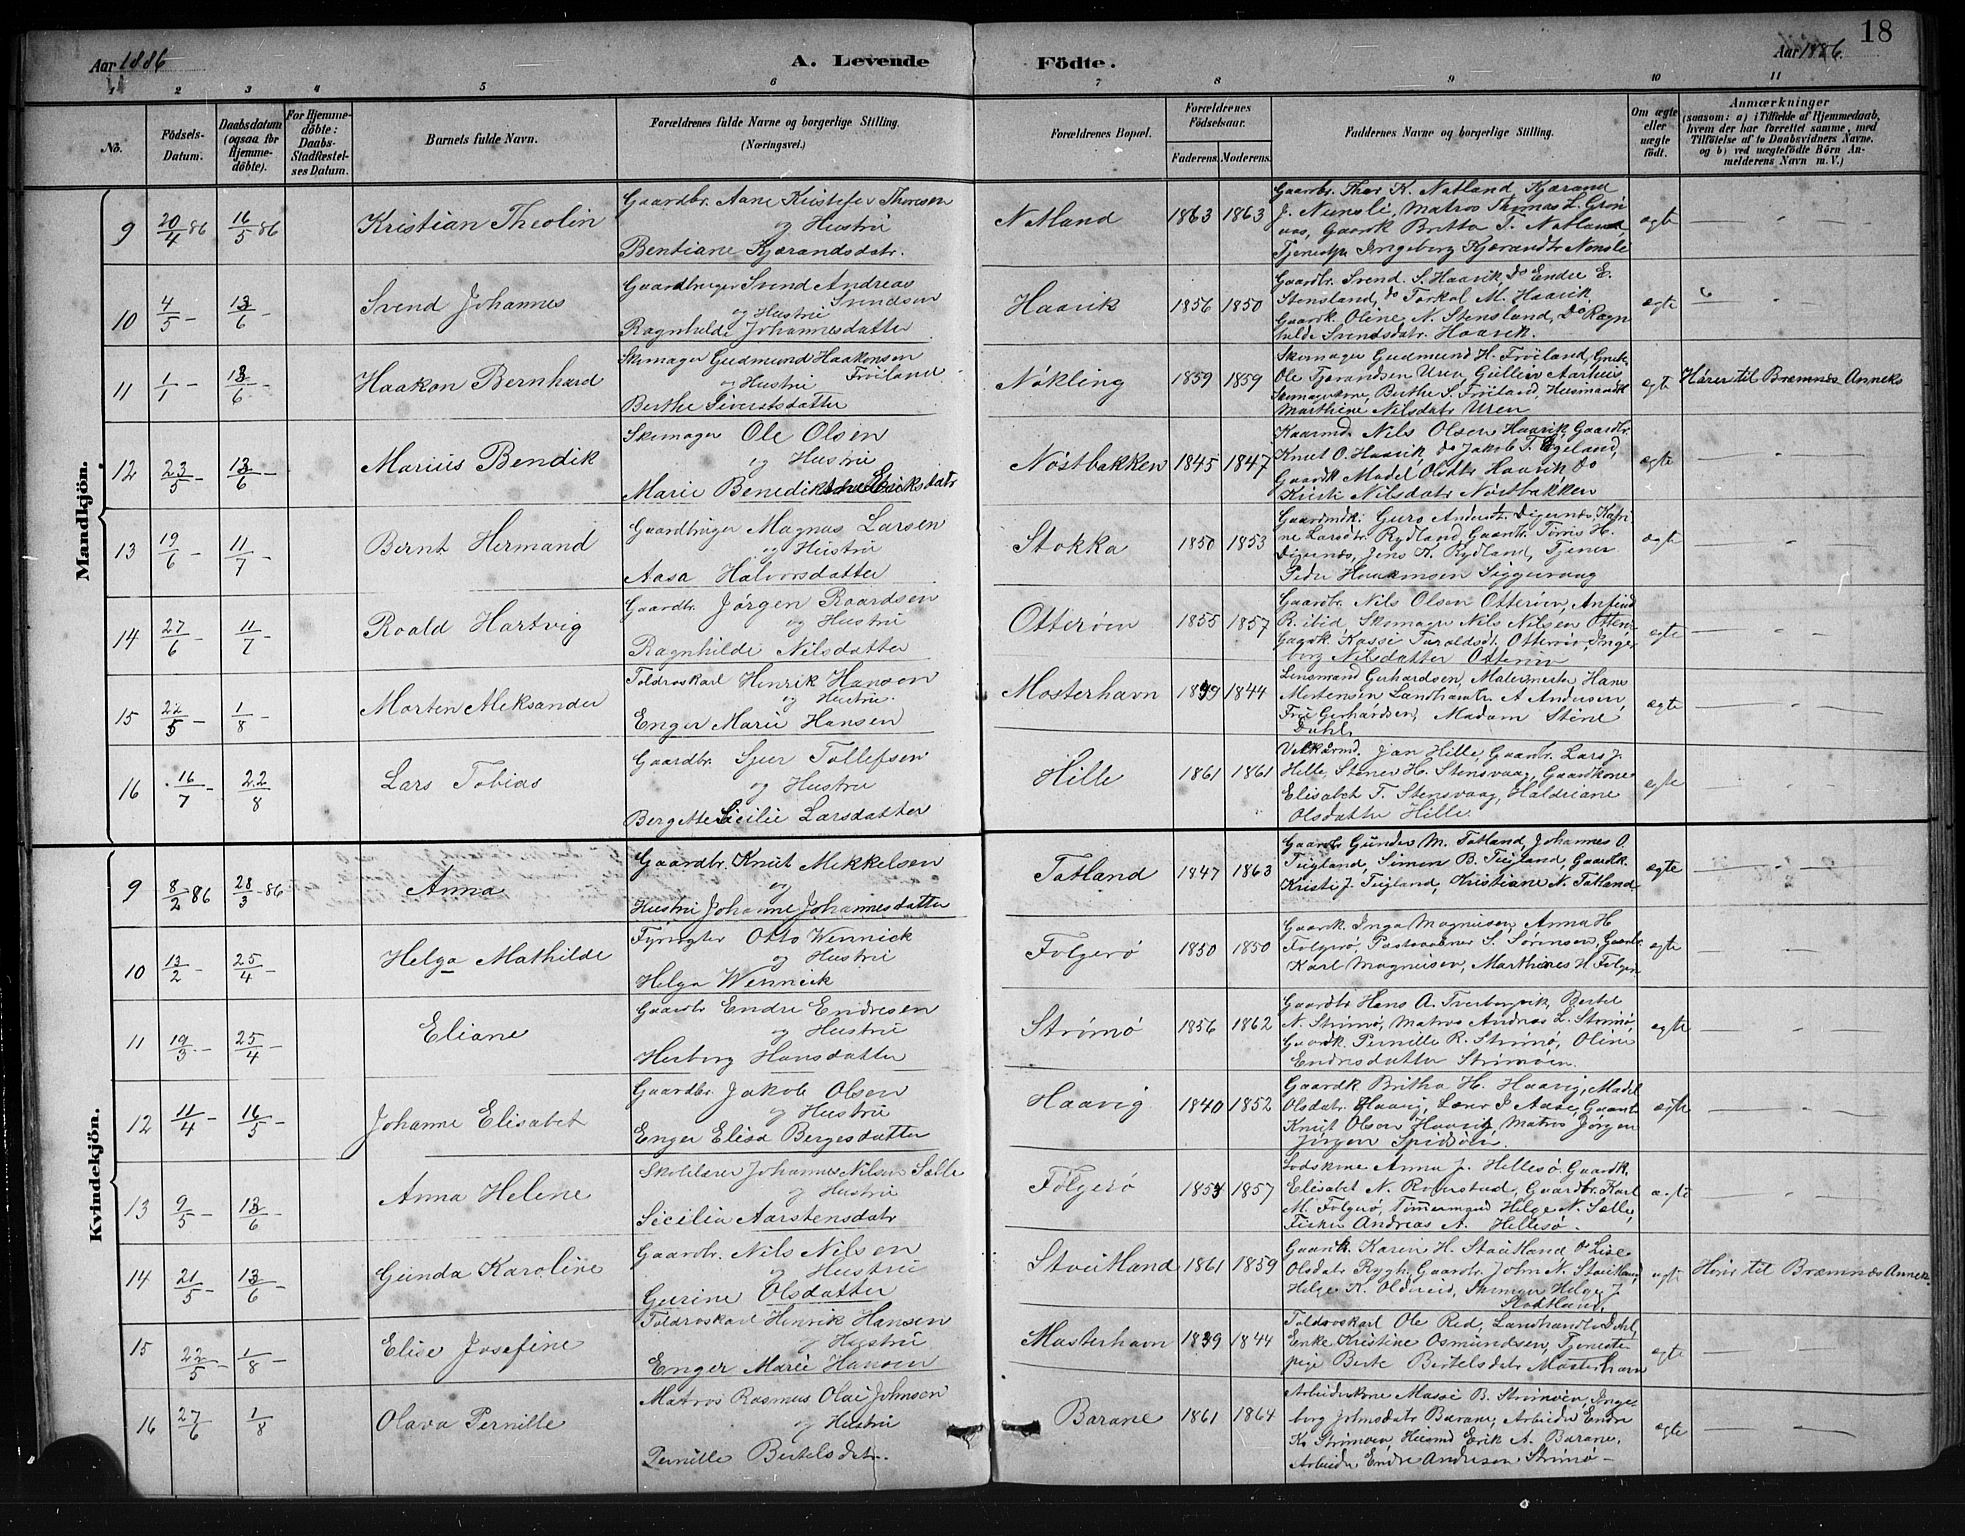 18
Aar 1886
A. Levende Födte.
Aar 1886.
1 2 3 4 5 6 7 8 9 10 11
No.
Födsels-Datum.
Daabsdatum (ogsaa for Hjemme-döbte).
For Hjemme-döbte: Daabs-Stadfæstel-ses Datum.
Barnets fulde Navn.
Forældrenes fulde Navne og borgerlige Stilling.
(Næringsvei.)
Forældrenes Bopæl.
Forældrenes Födselsaar.
Faderens. Moderens.
Faddernes Navne og borgerlige Stilling.
Om ægte eller uægte födt.
Anmærkninger
(saasom: a) i Tilfælde af Hjemmedaab,
hvem der har forrettet samme, med
Tilföielse af to Daabsvidners Navne.
og b) ved uægtefödte Börn An-
melderens Navn m. V.)
Mandkjön.
9 20/4 86 16/5 86 Kristian Theolin
Gaardbr. Aane Kristofer Thoresen
og Hustru
Bentiane Kjørandsdatr.
Natland 1863 1863
Gaardbr. Thor K. Natland Kjørand
J. Nunsli, Matros Thomas L. Grøn
aas, Gaardk Britta T. Natland
Ingeborg Kjørandtr Nonsli
ægte
10 4/5 - 13/6 - Svend Johannes
Gaardbruger Svend Andreas
Svendsen
og Hustru
Ragnhilde Johannesdatter
Haavik 1856 1850
Gaardbr. Svend S. Haavik do Endre E.
Stensland, do Torkel M. Haavik
Gaardk. Oline N. Stensland, Do Ragn
hilde Svendsdatr. Haavik.
ægte
11 1/1 - 13/6 - Haakon Bernhard
Skomager Gudmund Haakonsen
og Hustru Fröiland
Berthe Siversdatter
Nökling 1859 1859
Skomager Gudmund H. Fröiland,
Ole Tjørandsen Uren
Berthe S. Fröiland, Husmandk
Marthine Nilsdatr Uren
ægte Hører til Bremnes Anneks
12 23/5 - 13/6 - Marius Bendik
Skomager Ole Olsen
og Hustru
Marie Benedikte Eriksdatr
Nöstbakken 1845 1847
Kaarmd. Nils Olsen Haavik Gaardbr.
Knut O. Haavik, do Jakob T. Egeland,
Gaardk Madel Olsdtr Haavik Do
Kristi Nilsdatr Nöstbakken
ægte
13 19/6 - 11/7 - Bernt Hermand
Gaardbruger Magnus Larsen
og Hustru
Aasa Halvorsdatter
Stokka 1850 1853
Guro Andersdt. Digernæs, Katri
ne Larsdtr Rydland Gaardbr. Torris H.
Digernæs, Jens K. Rydland, Tjener
Peder Haakonsen Siggervaag
ægte
14 27/6 - 11/7 - Roald Hartvig
Gaardbr. Jørgen Roardsen
og Hustru
Ragnhilde Nilsdatter
Otterøen 1855 1857
Gaardbr. Nils Olsen Otterøen, Anfind
Skomager Nils Nilsen Otterø
Otterø, Inge
borg Nilsdatter Otterøen
ægte
15 22/5 - 1/8 - Morten Aleksander
Toldroskarl Henrik Hansen
og Hustru.
Enger Marie Hansen
Mosterhavn 1839 1844
Lensmand Gerhardsen, Malermester Hans
Mortensen Landhandler A Andersen,
Frue Gerhardsen, Madam Stine
Dahl.
ægte
16 16/7 - 22/8 Lars Tobias
Gaardbr. Sjur Tollefsen
og Hustru
Bergette Sicilie Larsdatter
Hille 1861 1861
Jan Hille, Gaardbr. Lars J.
Hille, Stener H. Stensvaag, Gaardkone
Elisabet T. Stensvaag, Haldriane
Olsdatter Hille.
ægte
Kvindekjön.
9 8/2 86 28/3 86 Anna
Gaardbr. Knut Mikkelsen
og
Hustru Johanne Johannesdatter
Totland 1847 1863
Gaardbr Gunder M. Totland, Johannes O.
Tugland, Simen B. Tugland, Gaardk.
Kristi J. Tugland, Kristiane N. Totland
ægte
10 13/2 - 25/4 - Helga Mathilde
Fyrvogter Otto Wennick
og Hustru
Helga Wennick
Folgerö 1850 1850
Gaardk. Inga Magnusen, Anna H
Folgerö, Postaabner S. Sørensen, Gaardbr
Karl Magnusen, Marthines H Folgerö
ægte
11 19/3 - 25/4 - Eliane
Gaardbr Endre Endresen
og Hustru
Herborg Hansdatter
Strömö 1856 1862
Gaardbr Hans A. Tverborgvik, Bertel
N. Strömö, Matros Andreas L. Strömö,
Gaardk. Pernille R. Strömö, Oline
Endresdatter Strömöen.
ægte
12 11/4 - 16/5 - Johanne Elisabet
Gaardbr. Jakob Olsen
og Hustru
Enger Elisa Bergesdatter
Haavig 1840 1852
Gaardk Britha H. Haavig, Madel
Olsdatr. Haavig, Lærer J. Aase, Gaardbr
Knut Olsen Haavik, Matros Jørgen
Jørgen Spidsöen.
ægte
13 9/5 - 13/6 - Anna Helene
Skolelærer Johannes Nilsen Sælle
og Hustru
Sicilia Aarstensdatr
Folgerö 1854 1857
Lodskone Anna J. Hillesö, Gaardk.
Elisabet N. Gaardbr. Karl
M. Folgerö, Tömmermand Helge N. Sælle,
Fisker Andreas A. Hillesö.
ægte
14 21/5 - 13/6 - Gunda Karoline
Gaardbr. Nils Nilsen
og Hustru
Gurine Olsdatter
Stoutland 1861 1859
Gaardk. Karen H. Stoutland Do Lise
Olsdatr Rygh, Gaardbr. John N. Stoutland
Helge K. Oldereid, Helge J.
Stoutland.
ægte Hører til Bremnes Annek
15 22/5 - 1/8 - Elise Josefine
Toldroskarl Henrik Hansen
og Hustru
Enger Marie Hansen
Mosterhavn 1839 1844
Toldroskarl Ole Rød, Landhandler Dahl,
Enke Kristine Osmundsen, Tjeneste
pige Berte Bertelsdatr Mosterhavn
ægte
16 27/6 - 1/8 Olava Pernille
Matros Rasmus Olai Johnsen
og Hustru
Pernille Bertelsdatr.
Barane 1861 1864
Arbeiderkone Massi B. Strömöen, Inge
borg Johnsdatr Barane, Arbeider Endre
K. Strömöen, Husmd Erik A. Barane,
Arbeider Endre Andersen Strömö -
ægte